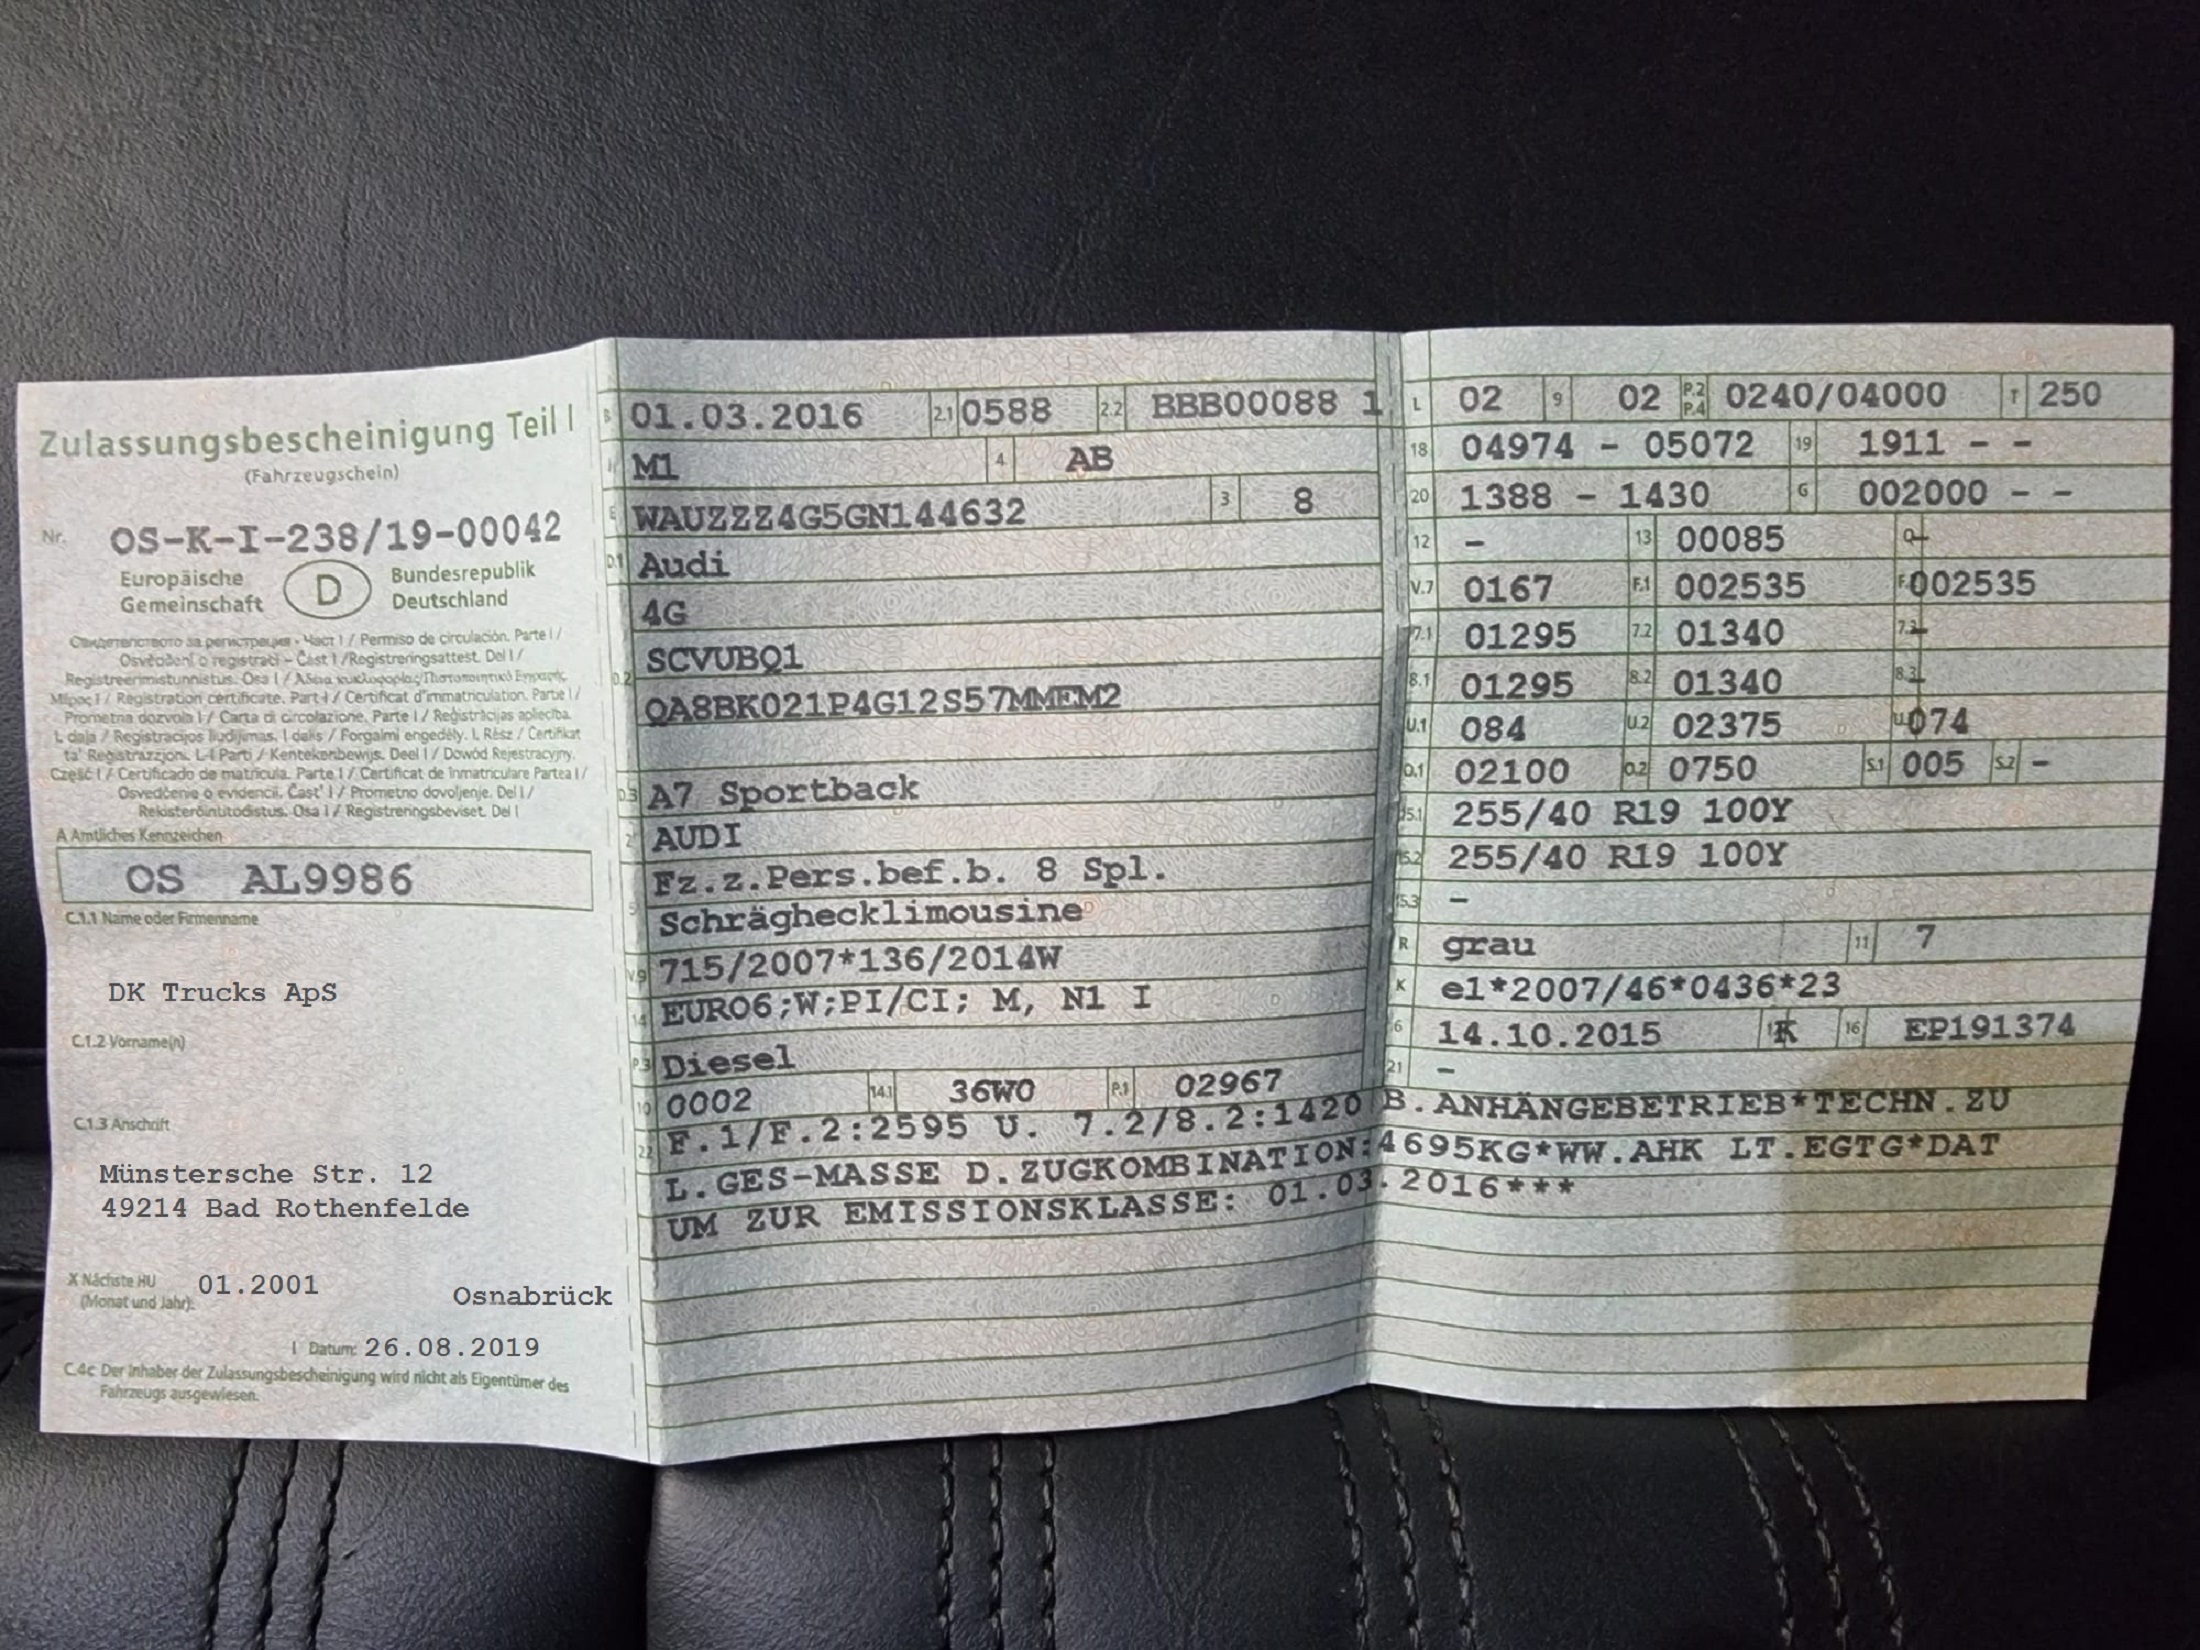 Zulassungsbescheinigung Teil I
(Fahrzeugschein)
Nr. OS-K-I-238/19-00042
Europäische Gemeinschaft D Bundesrepublik Deutschland
Свидетелството за регистрация - Част I / Permiso de circulación. Parte I /
Osvědčení o registraci - Část I / Registreringsattest. Del I /
Registreerimistunnistus. Osa I / Άδεια κυκλοφορίας/Πιστοποιητικό Εγγραφής
Μέρος I / Registration certificate. Part I / Certificat d'immatriculation. Partie I /
Prometna dozvola I / Carta di circolazione. Parte I / Reģistrācijas apliecība.
I. daļa / Registracijos liudijimas. I dalis / Forgalmi engedély. I. Rész / Ċertifikat
ta' Reġistrazzjoni. L-I Parti / Kentekenbewijs. Deel I / Dowód Rejestracyjny.
Część I / Certificado de matrícula. Parte I / Certificat de înmatriculare Partea I /
Osvedčenie o evidencii. Časť I / Prometno dovoljenje. Del I /
Rekisteröintitodistus. Osa I / Registreringsbeviset. Del I
A Amtliches Kennzeichen
OS AL9986
C.1.1 Name oder Firmenname
DK Trucks ApS
C.1.2 Vorname(n)
C.1.3 Anschrift
Münstersche Str. 12
49214 Bad Rothenfelde
X Nächste HU 01.2001
(Monat und Jahr):
Osnabrück
I Datum: 26.08.2019
C.4c Der Inhaber der Zulassungsbescheinigung wird nicht als Eigentümer des
Fahrzeugs ausgewiesen.
B 01.03.2016 2.1 0588 2.2 BBB00088 1
J M1 4 AB
E WAUZZZ4G5GN144632 3 8
D.1 Audi
4G
D.2 SCVUBQ1
QA8BK021P4G12S57MMEM2
D.3 A7 Sportback
2 AUDI
5 Fz.z.Pers.bef.b. 8 Spl.
Schräghecklimousine
V.9 715/2007*136/2014W
14 EURO6;W;PI/CI; M, N1 I
P.3 Diesel
10 0002 14.1 36W0 P.1 02967
22 F.1/F.2:2595 U. 7.2/8.2:1420 B.ANHÄNGEBETRIEB*TECHN.ZU
L.GES-MASSE D.ZUGKOMBINATION:4695KG*WW.AHK LT.EGTG*DAT
UM ZUR EMISSIONSKLASSE: 01.03.2016***
L 02 9 02 P.2 P.4 0240/04000 T 250
18 04974 - 05072 19 1911 - -
20 1388 - 1430 G 002000 - -
12 - 13 00085 Q -
V.7 0167 F.1 002535 F.2 002535
7.1 01295 7.2 01340 7.3 -
8.1 01295 8.2 01340 8.3 -
U.1 084 U.2 02375 U.3 074
O.1 02100 O.2 0750 S.1 005 S.2 -
15.1 255/40 R19 100Y
15.2 255/40 R19 100Y
15.3 -
R grau 11 7
K e1*2007/46*0436*23
6 14.10.2015 17 K 16 EP191374
21 -